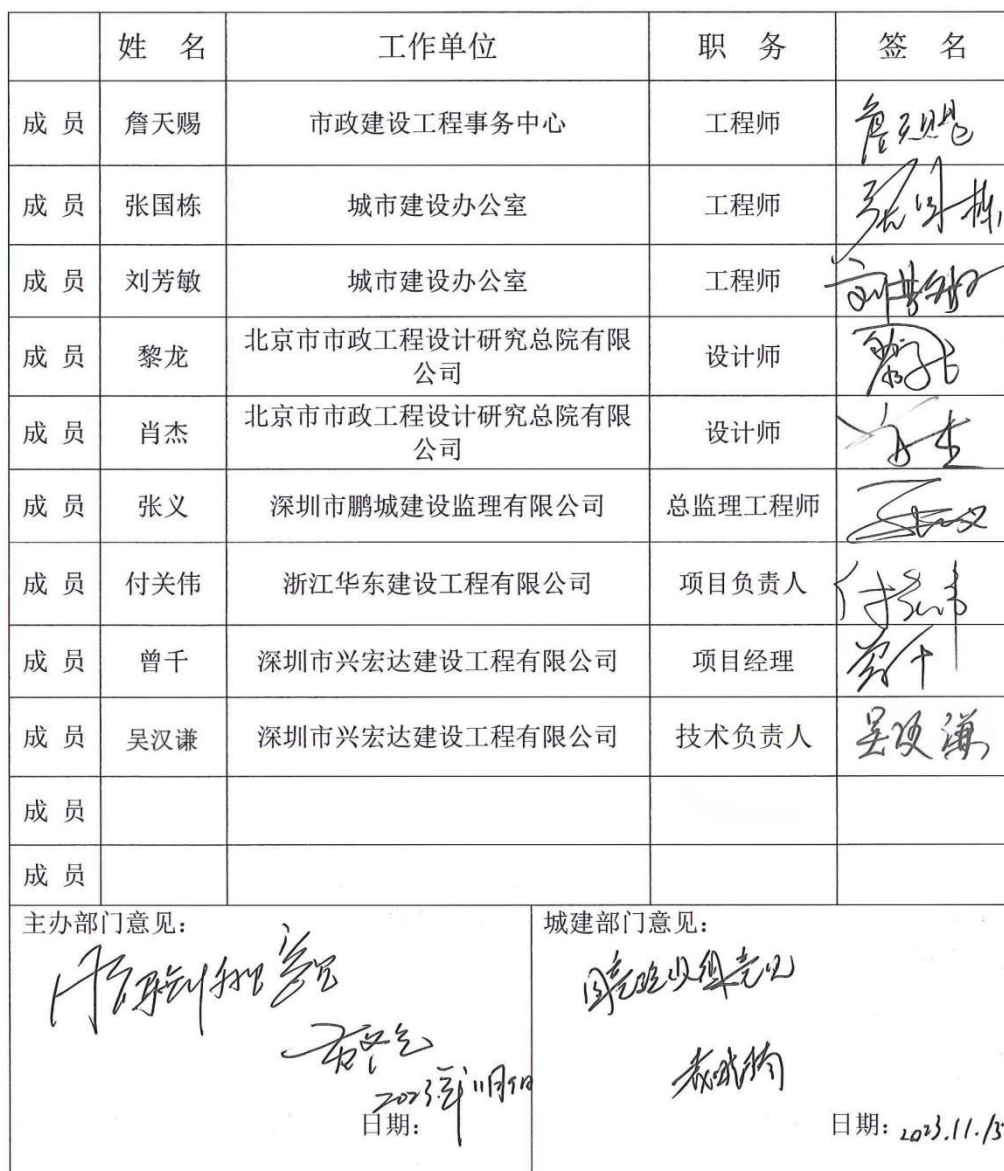 姓 名 工作单位 职 务 签 名
成 员 詹天赐 市政建设工程事务中心 工程师 詹天赐
成 员 张国栋 城市建设办公室 工程师 张国栋
成 员 刘芳敏 城市建设办公室 工程师 刘芳敏
成 员 黎龙 北京市市政工程设计研究总院有限
公司 设计师 黎龙
成 员 肖杰 北京市市政工程设计研究总院有限
公司 设计师 肖杰
成 员 张义 深圳市鹏城建设监理有限公司 总监理工程师 张义
成 员 付关伟 浙江华东建设工程有限公司 项目负责人 付关伟
成 员 曾千 深圳市兴宏达建设工程有限公司 项目经理 曾千
成 员 吴汉谦 深圳市兴宏达建设工程有限公司 技术负责人 吴汉谦
成 员
成 员
主办部门意见：
2023年11月9日
日期：
城建部门意见：
同意验收组意见
日期：2023.11.13